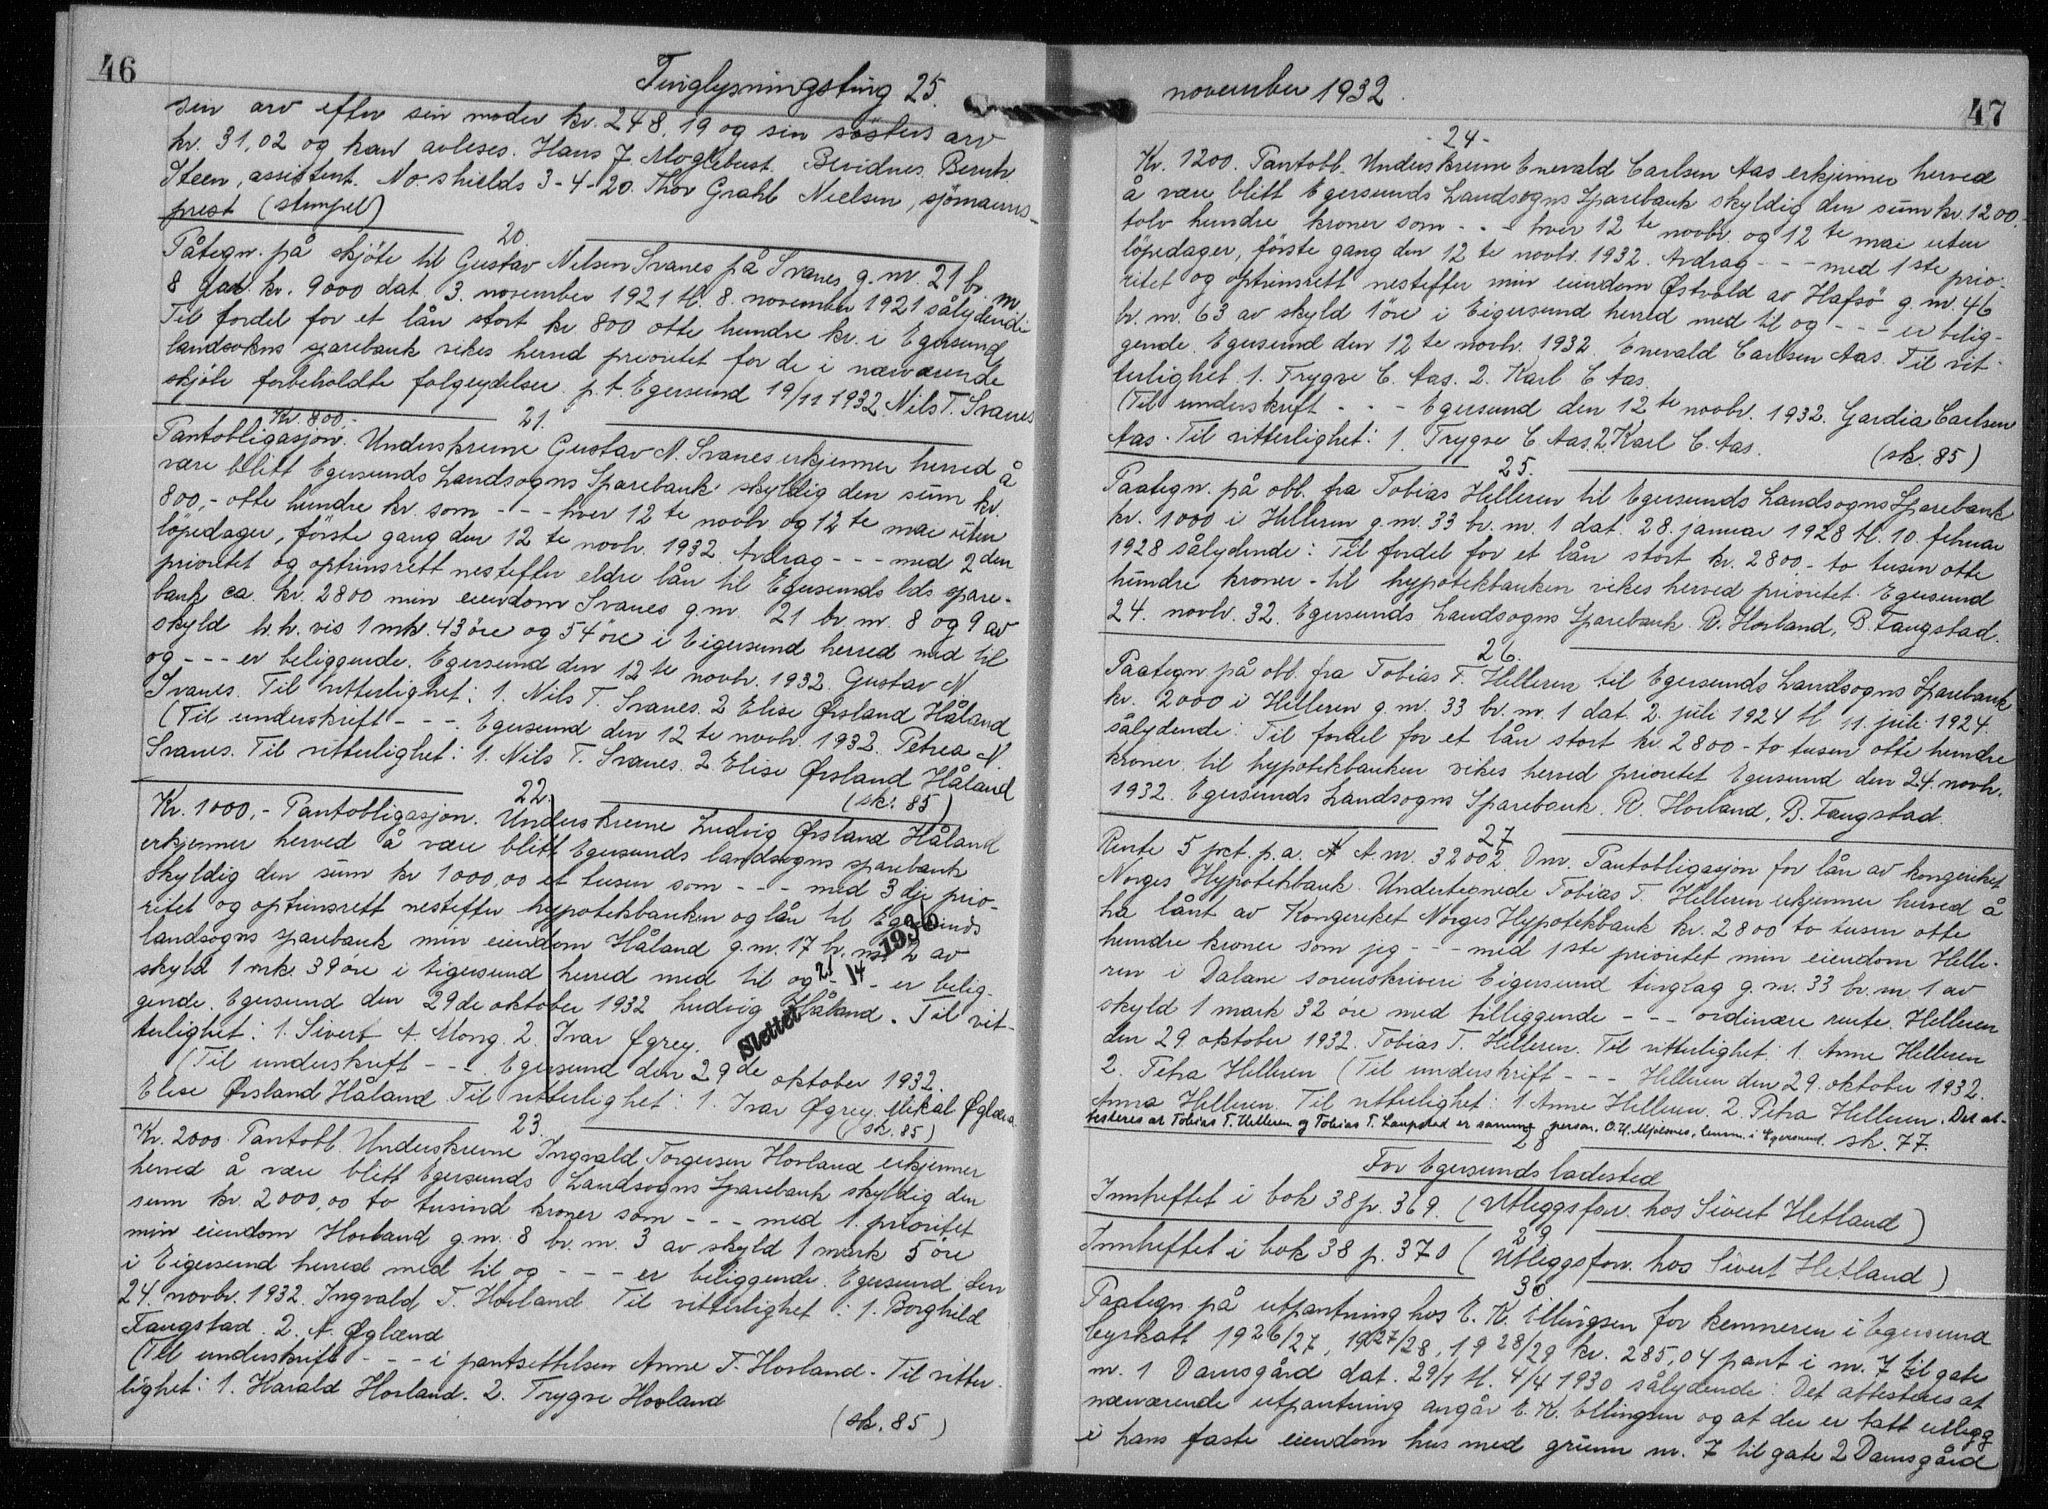 46
Tinglysningsting 25.
sin arv efter sin moder kr. 248,19 og sin søsters arv
kr. 31,02 og kan avleses. Hans J. Moglebust. Bevidnes Bernh
Steen, assistent. No. shields 3-4-20. Thor Grahl Nielsen, sjömanns-
prest (stempel)
20.
Påtegn. på skjöte til Gustav Nilsen Svanes på Svanes g.nr. 21 br nr
8 for kr. 9000 dat. 3. november 1921 tl. 8. november 1921 sålydende
Til fordel for et lån stort kr. 800 otte hundre kr. i Egersund
landsokns sparebank vikes herved prioritet for de i nærværende
skjöte forbeholdte folgeydelser. p.t. Egersund 19/11 1932 Nils T. Svanes
21.
Kr. 800,-
Pantobligasjon. Underskrevne Gustav N. Svanes erkjenner herved å
være blitt Egersunds Landsogns Sparebank skyldig den sum kr.
800,- otte hundre kr. som - - - hver 12 te novbr og 12 te mai uten
löpedager, förste gang den 12 te novbr. 1932. Avdrag - - - med 2 den
prioritet og optrinsrett nesteffer eldre lån til Egersunds lds spare-
bank ca. kr. 2800 min eiendom Svanes g.nr. 21 br. nr. 8 og 9 av
skyld h.h. vis 1 mk. 43 öre og 54 öre i Eigersund herred med til
og - - - er beliggende. Egersund den 12 te novbr. 1932. Gustav N.
Svanes. Til vitterlighet: 1. Nils T. Svanes. 2 Elise Ørsland Håland
(Til underskrift - - - . Egersund den 12 te novbr. 1932. Petrea N.
Svanes. Til vitterlighet: 1. Nils T. Svanes. 2 Elise Ørsland Håland
(sk. 85)
22.
Kr. 1000,- Pantobligasjon. Underskrevne Ludvig Ørsland Håland
erkjenner herved å være blitt Egersunds landsogns sparebank
skyldig den sum kr 1000,00 et tusen som - - - med 3 dje prio-
ritet og optrinsrett nesteffer hypotekbanken og lån til Egersunds
landsogns sparebank min eiendom Håland g.nr. 17 br. nr. 2 av
skyld 1 mk. 39 öre i Eigersund herred med til og - - - er belig-
gende. Egersund den 29 de oktober 1932 Ludvig Håland. Til vit-
terlighet: 1. Sivert A. Mong. 2. Ivar Øgrey.
Slettet 21/14 1930
(Til underskrift - - - . Egersund den 29 de oktober 1932.
Elise Ørsland Håland. Til vitterlighet: 1. Ivar Øgrey. Mikal Øglænd
(sk. 85)
23.
Kr. 2000. Pantobl. Underskrevne Ingvald Torgersen Hovland erkjenner
herved å være blitt Egersunds Landsogns Sparebank skyldig den
sum kr. 2000,00 to tusind kroner som - - - med 1. prioritet
min eiendom Hovland g.nr. 8 br. nr. 3 av skyld 1 mark 5 öre
i Eigersund herred med til og - - - er beliggende. Egersund den
24. novbr. 1932. Ingvald T. Hovland. Til vitterlighet: 1. Borghild
Faugstad. 2. A. Øglænd
(Til underskrift - - - i pantsettelsen Anne T. Hovland. Til vitter-
lighet: 1. Harald Hovland. 2. Trygve Hovland
(sk. 85)
november 1932.
47
- 24 -
Kr. 1200. Pantobl. Underskrevne Enevald Carlsen Aas erkjenner herved
å være blitt Egersunds Landsogns Sparebank skyldig den sum kr. 1200,
tolv hundre kroner som - - - hver 12 te novbr. og 12 te mai uten
löpedager, förste gang den 12 te novbr. 1932. Avdrag - - - med 1 ste prio-
ritet og optrinsrett nesteffer min eiendom Østvold av Hafsö g.nr. 46
br. nr. 63 av skyld 1 öre i Eigersund herred med til og - - - er belig-
gende. Egersund den 12 te novbr. 1932 Enevald Carlsen Aas. Til vit-
terlighet. 1. Trygve C. Aas. 2. Karl C. Aas.
(Til underskrift - - - Egersund den 12 te novbr. 1932. Gardia Carlsen
Aas. Til vitterlighet: 1. Trygve C. Aas. 2. Karl C. Aas. (sk. 85)
25.
Paategn. på obl. fra Tobias Helleren til Egersunds Landsogns Sparebank
kr. 1000 i Helleren g.nr. 33 br. nr. 1 dat. 28. januar 1928 tl. 10. februar
1928 sålydende: Til fordel for et lån stort kr. 2800,- to tusen otte
hundre kroner - til hypotekbanken vikes herved prioritet. Egersund
24. novbr. 32. Egersunds Landsogns Sparebank. R. Hovland, B. Faugstad.
26.
Paategn. på obl. fra Tobias T. Helleren til Egersunds Landsogns Sparebank
kr. 2000 i Helleren g.nr. 33 br. nr. 1 dat. 2. juli 1924 tl 11. juli 1924.
sålydende: Til fordel for et lån stort kr. 2800 - to tusen otte hundre
kroner til hypotekbanken vikes herved prioritet Egersund den 24. novbr.
1932. Egersunds Landsogns Sparebank. R. Hovland, B. Faugstad.
27
Rente 5 pct. p.a. A.nr. 32002. Om. Pantobligasjon for lån av kongeriket
Norges Hypotekbank. Undertegnede Tobias T. Helleren erkjenner herved å
ha lånt av Kongeriket Norges Hypotekbank kr. 2800 to tusen otte
hundre kroner som jeg - - - med 1 ste prioritet min eiendom Helle-
ren i Dalane sorenskriveri Eigersund tinglag g.nr. 33 br. nr. 1 av
skyld 1 mark 32 öre med tilliggende - - - ordinære rente. Helleren
den 29. oktober 1932. Tobias T. Helleren. Til vitterlighet: 1. Anne Helleren
2. Petra Helleren (Til underskrift - - - Helleren den 29. oktober 1932.
Anna Helleren. Til vitterlighet: 1 Anne Helleren. 2. Petra Helleren. Det at-
testeres at Tobias T. Helleren og Tobias T. Laupstad er samme person. O.H. Mjølsnes, lensm. i Egersund. sk. 77.
28
For Egersunds ladested
Innheftet i bok 38 p. 369. (Utleggsforr. hos Sivert Hetland)
29
Innheftet i bok 38 p. 370 (Utleggsforr. hos Sivert Hetland)
30.
Paategn. på utpantning hos E. K. Ellingsen for kemneren i Egersund
byskatt 1926/27, 1927/28, 1928/29 kr. 285,04 pant i nr. 7 til gate
nr. 1 Damsgård dat. 29/1 tl. 4/4 1930 sålydende: Det attesteres at
nærværende utpantning angår E. K. Ellingsen og at der er tatt utlegg
i hans faste eiendom hus med grunn nr. 7 til gate 2 Damsgård